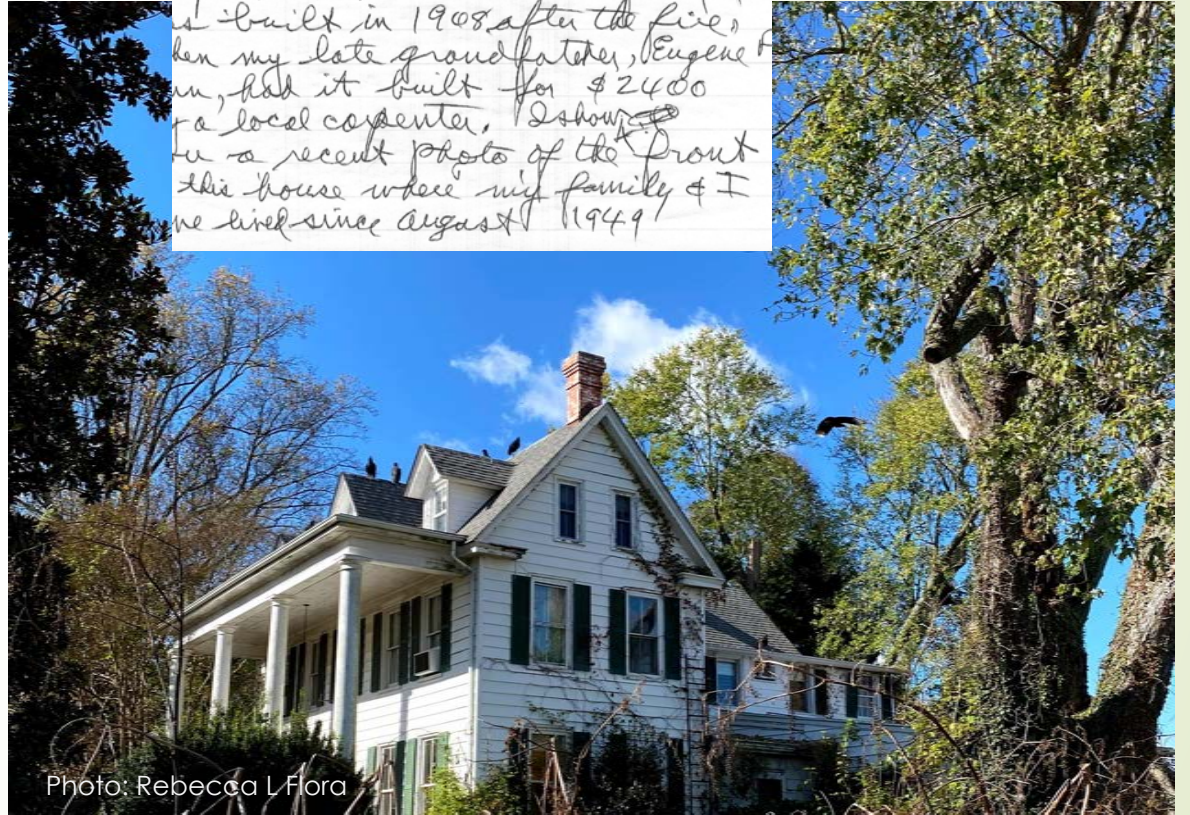 built in 1908 after the fire,
my late grandfather, Eugene
had it built for $2400
a local carpenter. I show
a recent photo of the front
this house where my family & I
lived since August 1949
Photo: Rebecca L Flora